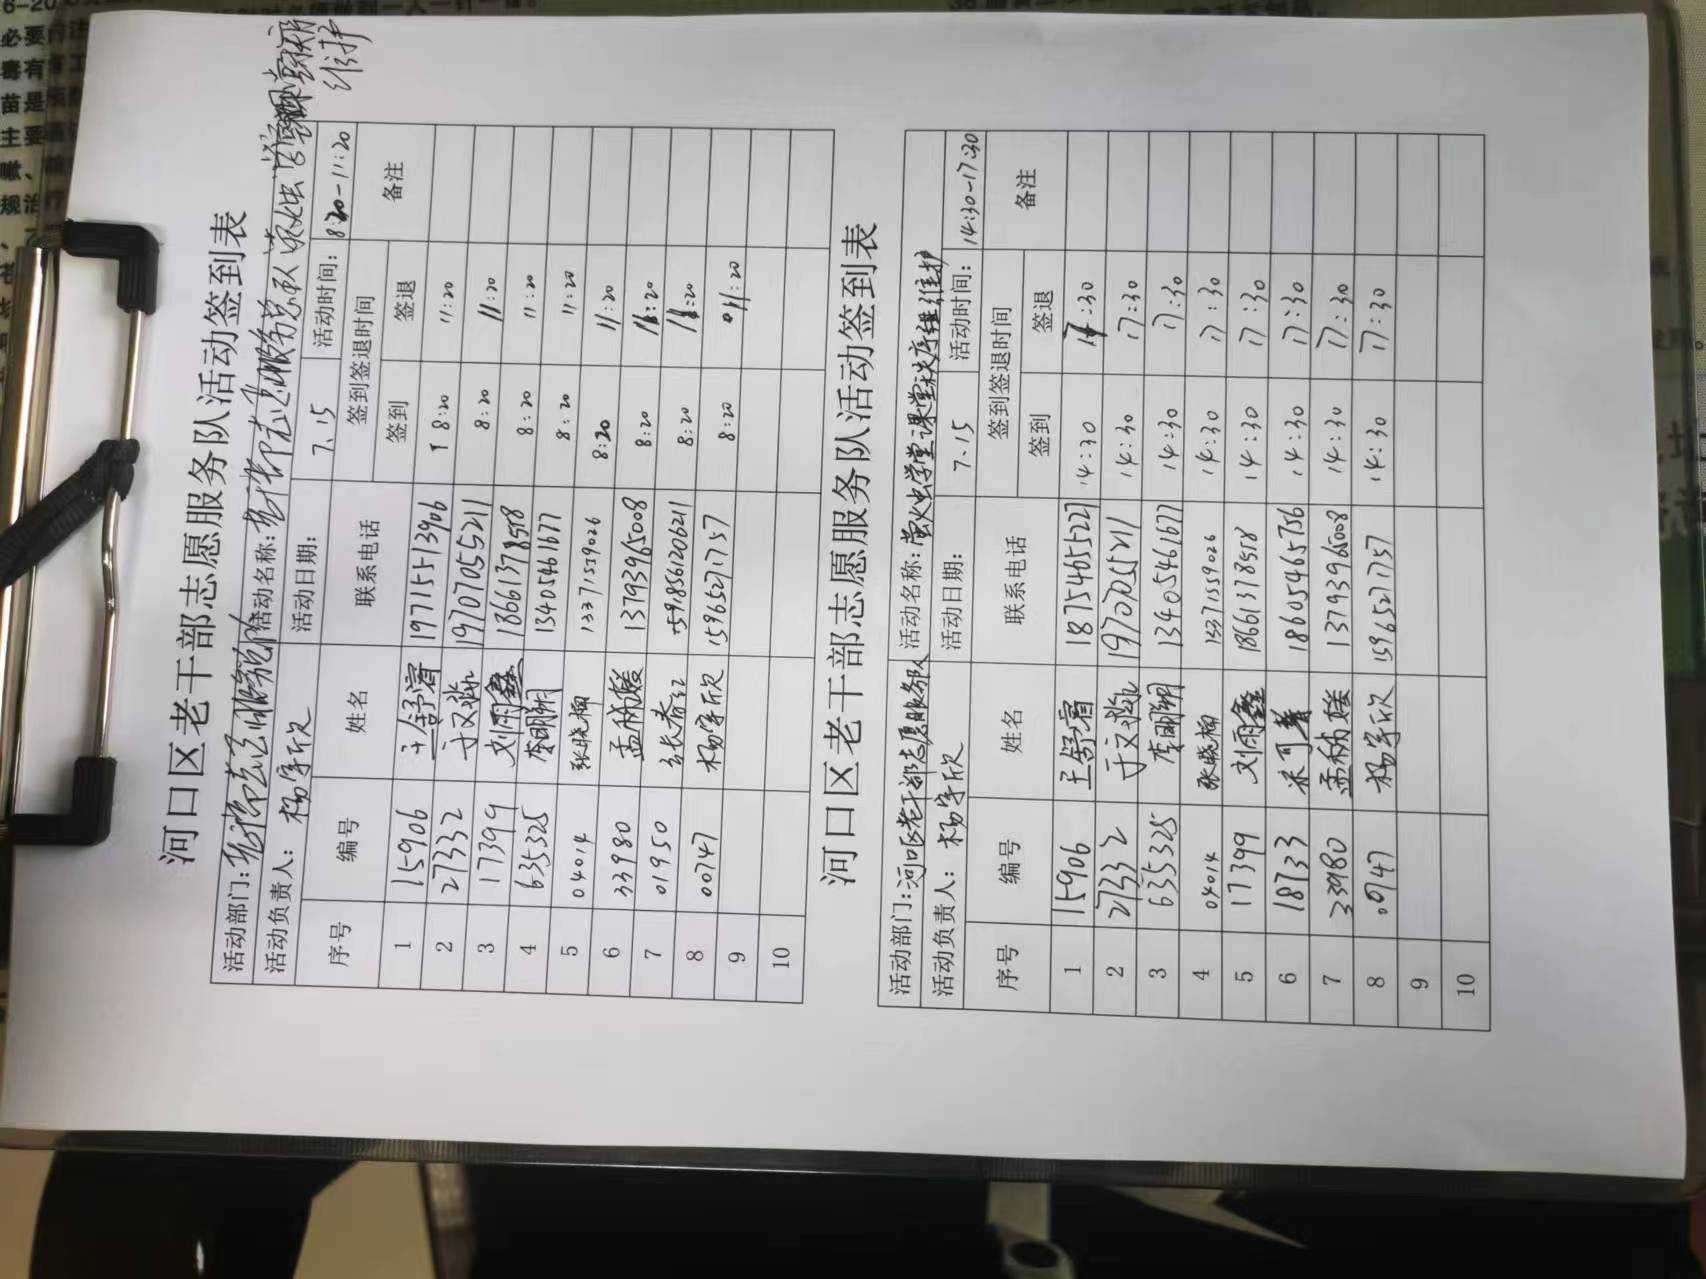 河口区老干部志愿服务队活动签到表
活动部门: 活动名称: 老干部志愿服务总队
维护
活动负责人: 杨宇欣 活动日期: 7.15 活动时间: 8:20-11:20
序号 编号 姓名 联系电话 签到签退时间 备注
签到 签退
1 15906 王舒睿 19715513906 8:20 11:20
2 27332 于又淼 19707055211 8:20 11:20
3 17399 刘雨鑫 18661378518 8:20 11:20
4 635325 李明翔 13405461677 8:20 11:20
5 04014 张晓柳 13371559026 8:20 11:20
6 33980 孟 13793965008 8:20 11:20
7 01950 张春红 8:20 11:20
8 00747 杨宇欣 15965271757 8:20 11:20
9
10
河口区老干部志愿服务队活动签到表
活动部门: 河口区老干部志愿服务队 活动名称: 萤火虫学堂课堂秩序维护
活动负责人: 杨宇欣 活动日期: 7.15 活动时间: 14:30-17:30
序号 编号 姓名 联系电话 签到签退时间 备注
签到 签退
1 15906 王舒睿 18754655227 14:30 17:30
2 27332 于又淼 19707055211 14:30 17:30
3 635325 李明翔 13405461677 14:30 17:30
4 04014 张晓柳 13371559026 14:30 17:30
5 17399 刘雨鑫 18661378518 14:30 17:30
6 18733 18605465756 14:30 17:30
7 33980 孟 13793965008 14:30 17:30
8 杨宇欣 15965271757 14:30 17:30
9
10